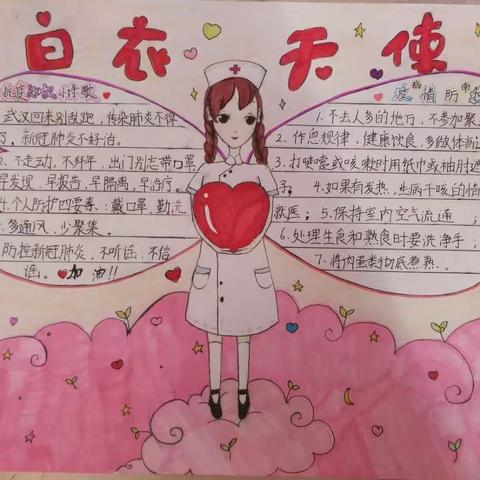 白衣天使
抗疫知识小诗歌
武汉回来别乱跑,传染肺炎不得
了,新冠肺炎不好治。
2、不走动,不拜年,出门别忘带口罩
早发现,早报告,早隔离,早治疗。
4.个人防护四要素:戴口罩,勤洗
多通风,少聚集。
防控新冠肺炎,不听谣、不信
谣。加油!!
疫情防
1.不去人多的地方,不参加聚
2.作息规律,健康饮食,多做体
3.打喷嚏或咳嗽时用纸巾或袖肘遮
4.如果有发热,生病干咳的
就医;5.保持室内空气流通;
6.处理生食和熟食时要洗净手;
7.将肉蛋类彻底煮熟。